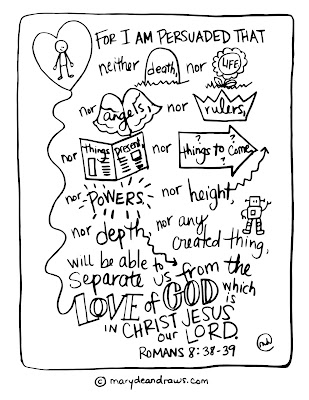 FOR I AM PERSUADED THAT
neither death, nor LIFE
nor angels, nor rulers,
nor things present, nor ? ? things to Come ?
nor POWERS, nor height,
nor depth, nor any
created thing,
will be able to
Separate us from the
LOVE of GOD which
is
IN CHRIST JESUS
our LORD.
ROMANS 8:38-39
© marydeandraws.com